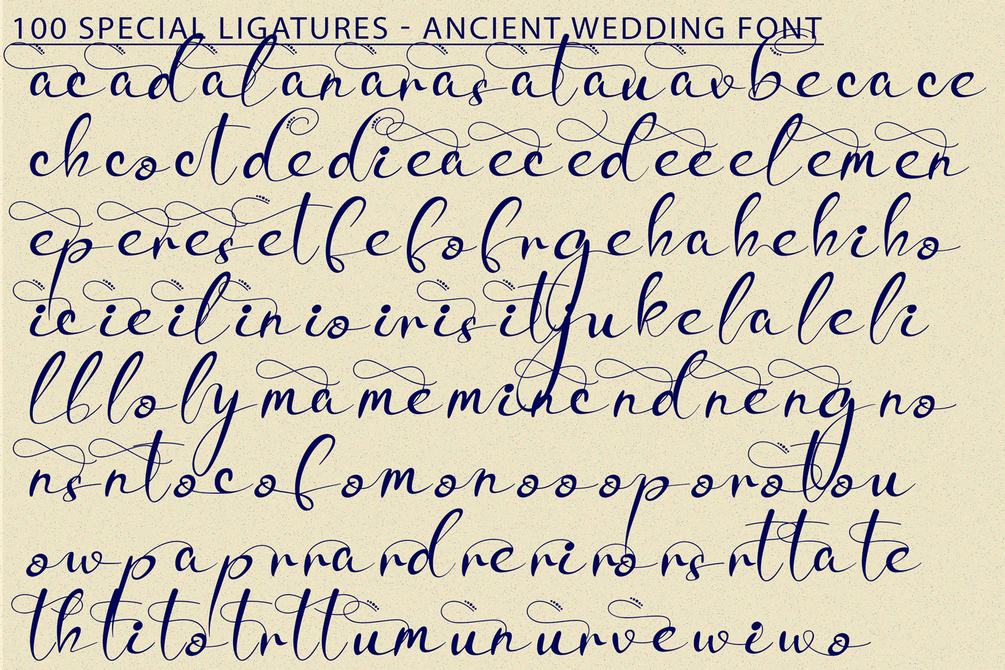 100 SPECIAL LIGATURES - ANCIENT WEDDING FONT
ac ad al an ar as at au av be ca ce
ch co ct de di ea ec ed ee el em en
ep er es et fe fo fr ge ha he hi ho
ic ie il in io ir is it ju ke la le li
ll lo ly ma me mi nc nd ne ng no
ns nt oc of om on oo op or ot ou
ow pa pr ra rd re ri ro rs rt ta te
th ti to tr tt um un ur ve wi wo